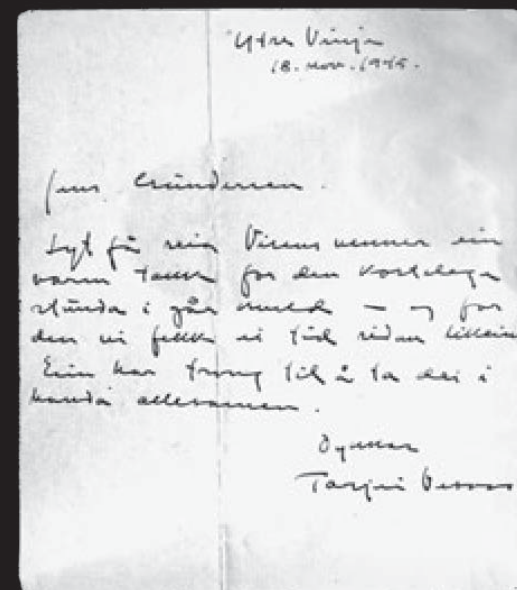 Ytre Vinje
18. nov. 1945.
Jens Gundersen.
Lyt få seia Vinens venner ein
varm takk for den kostelege
stunda i går kveld – og for
den vi fekk ei tid sidan
Ein har trong til å ta dei i
handa allesaman.
Dykkar
Tarjei Vesaas